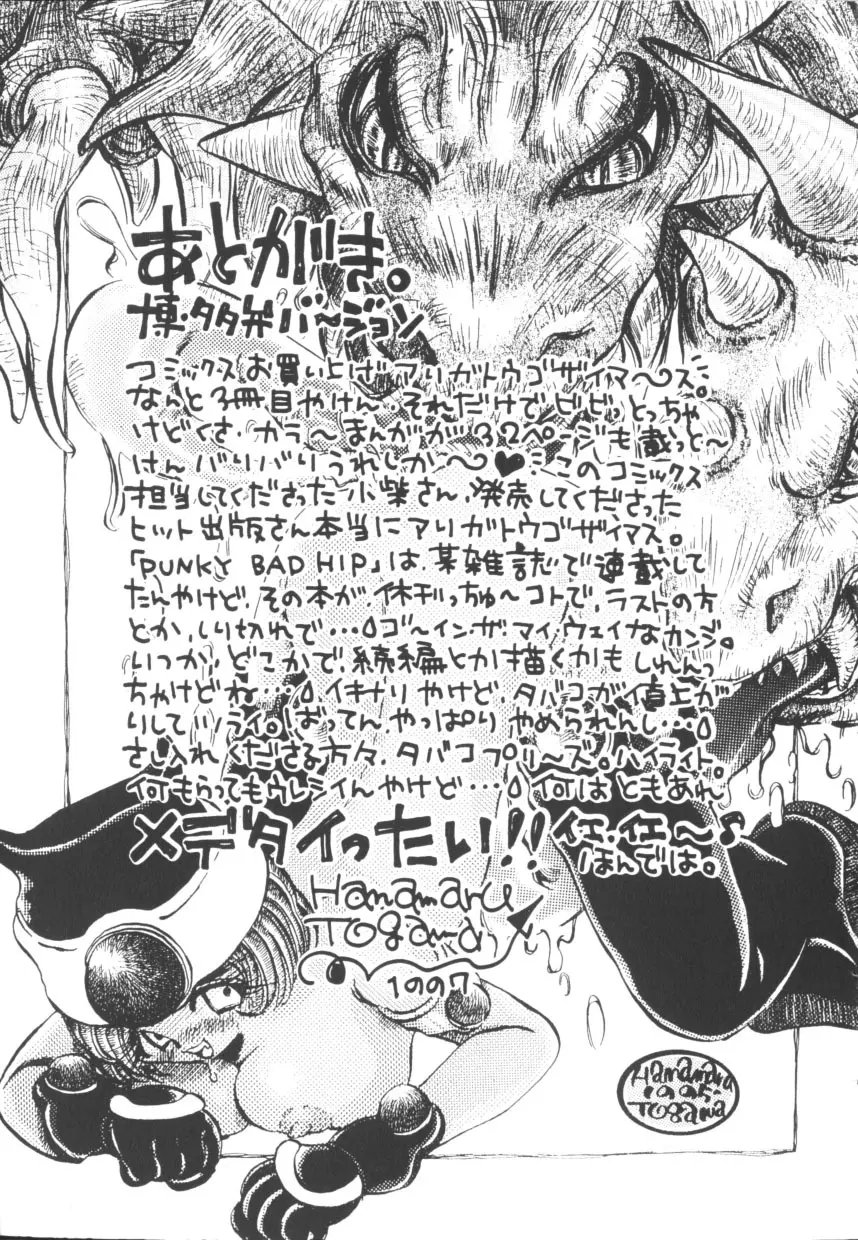 あとがき。
博・多弁バ〜ジョン
コミックスお買い上げアリガトウゴザイマ〜ス。
なんと3冊目やけん、それだけでビビっとっちゃ
けどくさ、カラ〜まんがが32ページも載っと〜
けんバリバリうれしか〜♥このコミックス
担当してくださった小柴さん、発売してくださった
ヒット出版さん本当にアリガトウゴザイマス。
「PUNKY BAD HIP」は、某雑誌で連載して
たんやけど、その本が、休刊っちゅ〜コトで、ラストの方
とか、しり切れで…ゴ〜イン・ザ・マイ・ウェイなカンジ。
いつか、どこかで、続編とか描くかもしれんっ
ちゃけどね…イキナリやけど、タバコが値上が
りしてツライ。ばってん、やっぱりやめられんし…
さし入れくださる方々、タバコプリ〜ズ。ハイライト。
何もらってもウレシイんやけど…何はともあれ
メデタイったい!!
ほんでは。
Hanamaru
TOgama
1997
Hanamaru
1995
TOgama